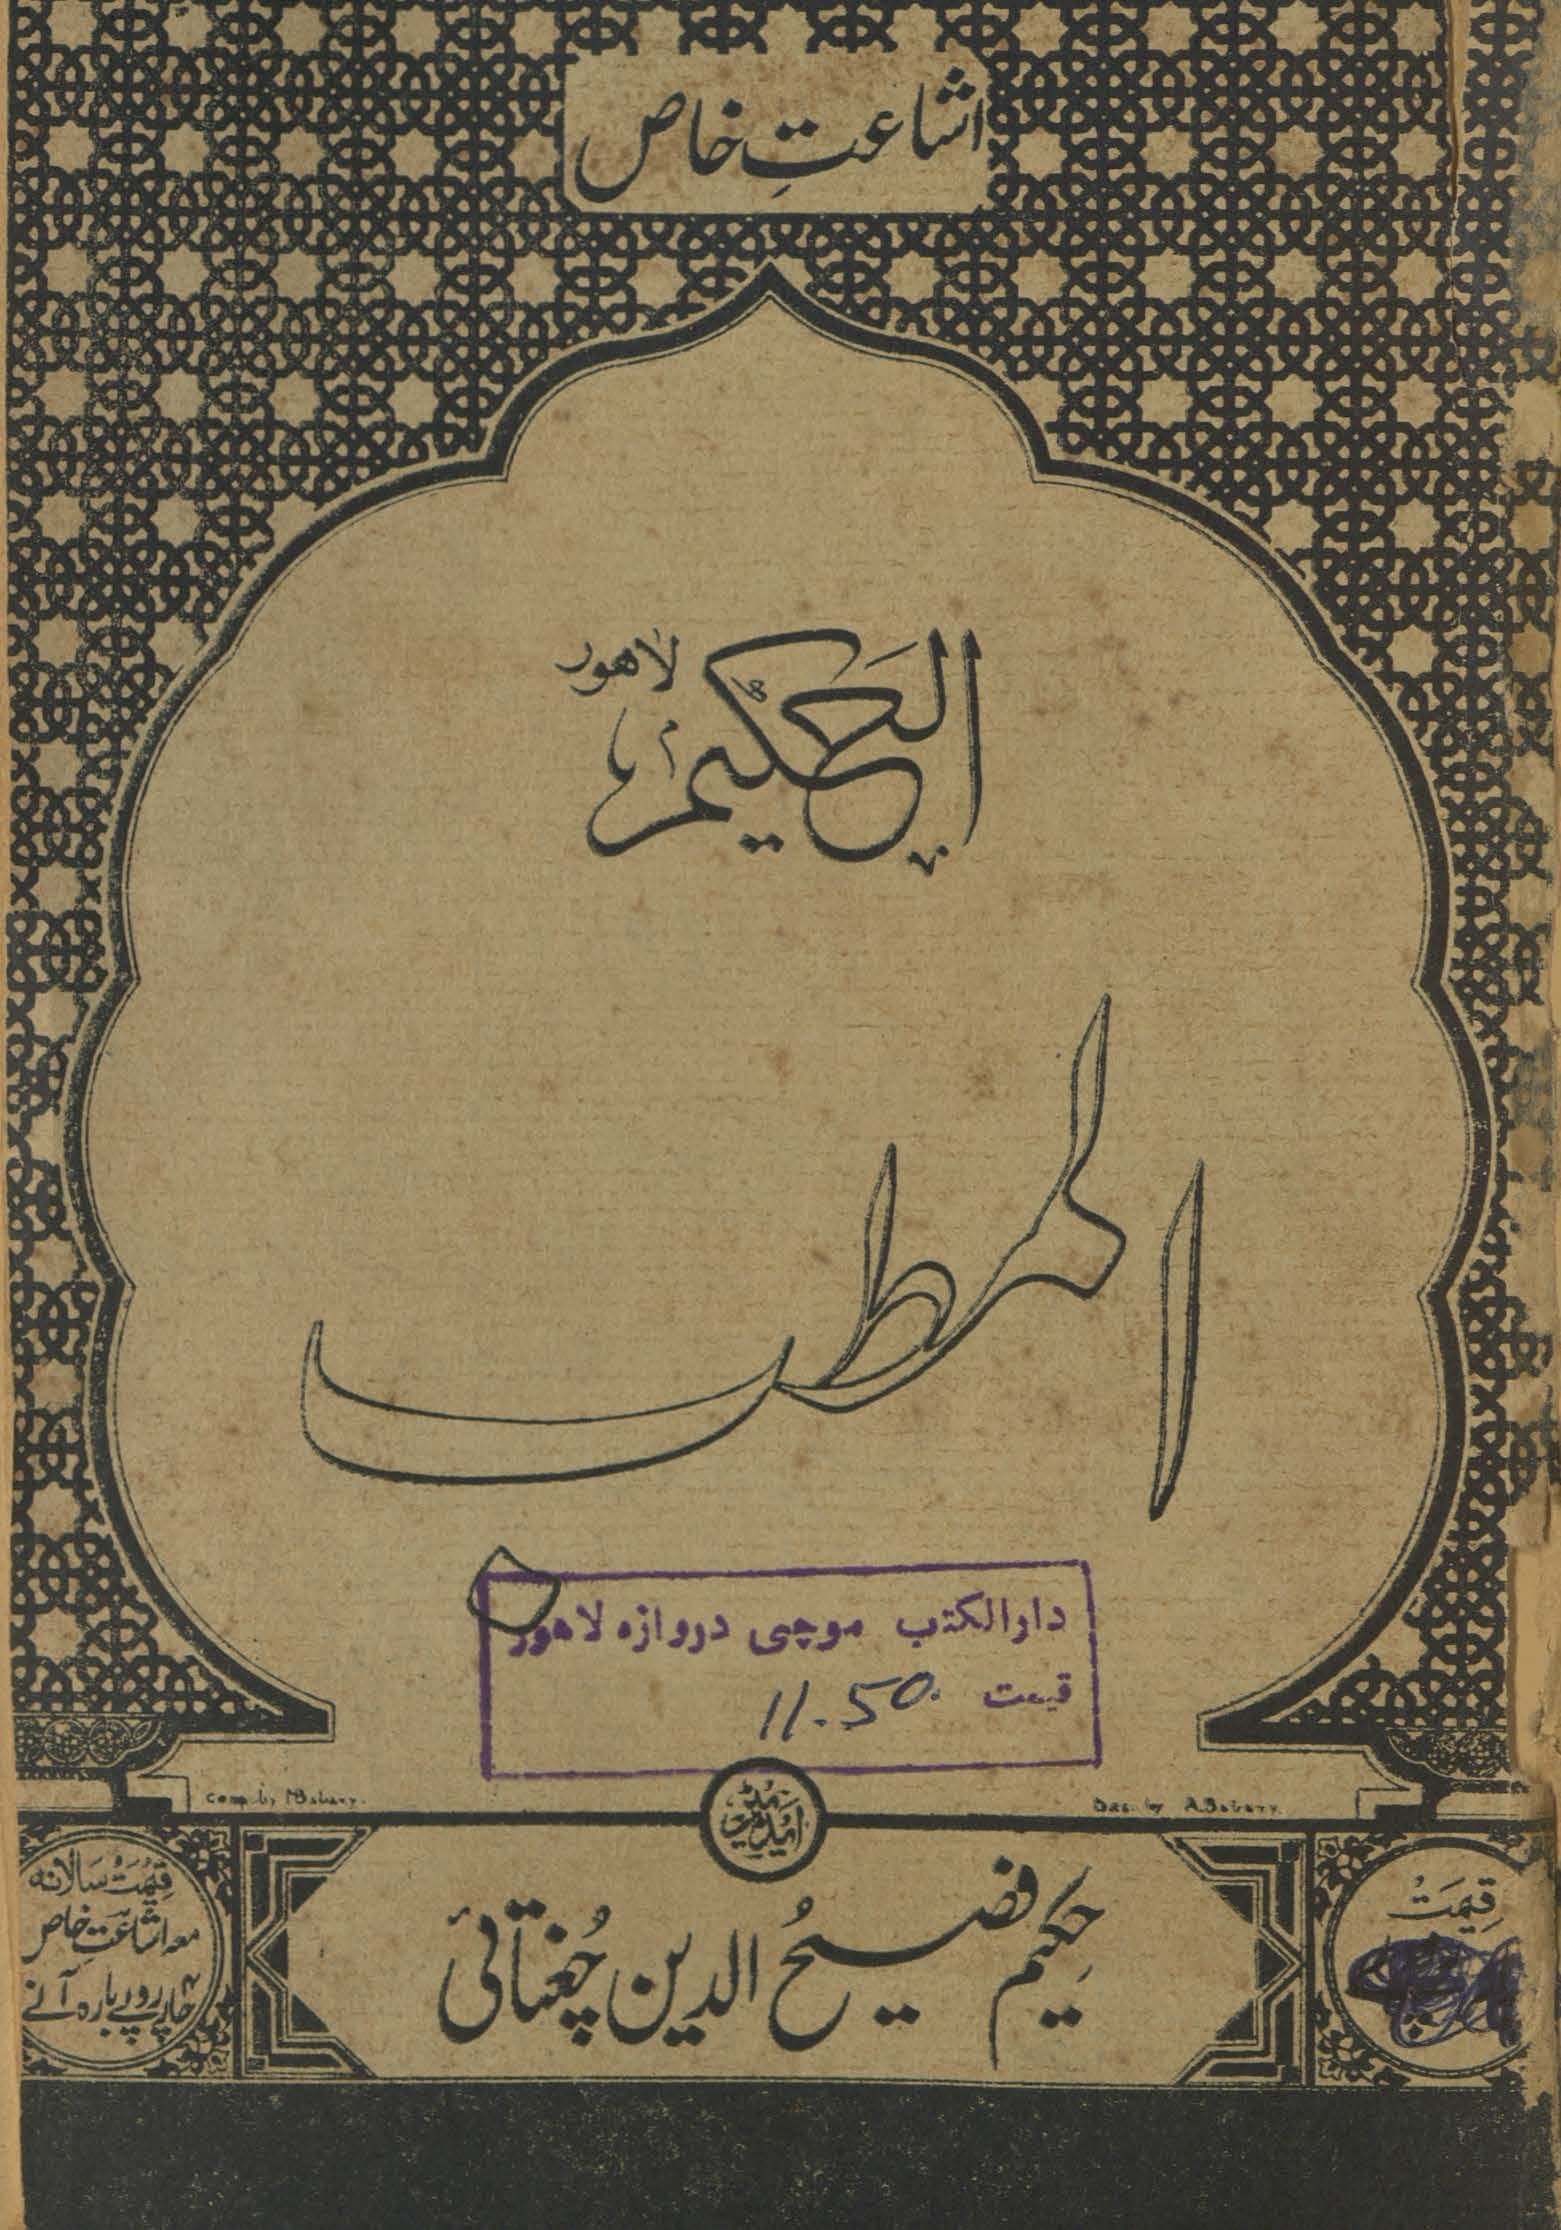 اشاعتِ خاص
الحکیم لاهور
المطب
دارالکتب موچی دروازہ لاهور
قیمت 11.50
Comp. by M Babary.
Des. by A. Babary.
ایڈیٹر
حکیم فصیح الدین چغتائی
قیمت
قیمت سالانہ
معہ اشاعتِ خاص
چار روپے بارہ آنے